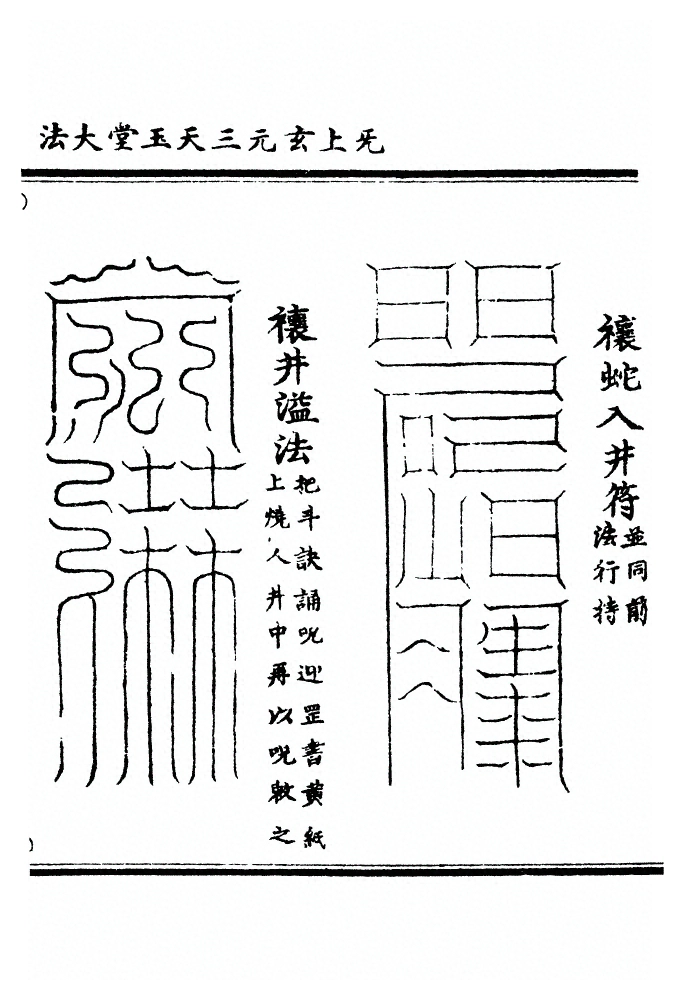 旡上玄元三天玉堂大法
禳蛇入井符
並同前
法行持
禳井溢法
把斗訣誦呪迎罡書黃紙
上燒入井中再以呪敕之